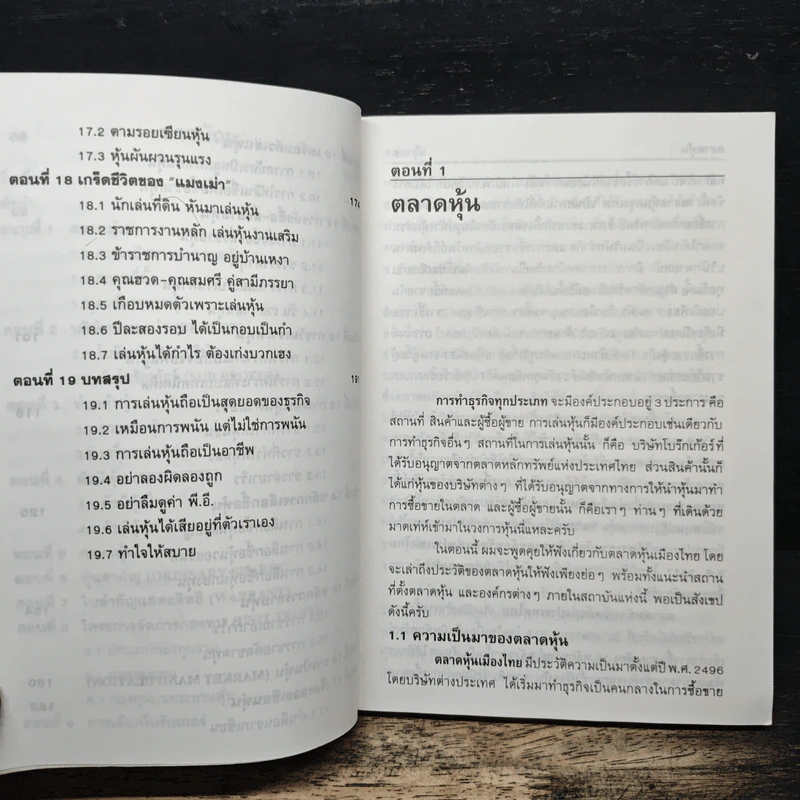 17.2 ตามรอยเซียนหุ้น
17.3 หุ้นผันผวนรุนแรง
ตอนที่ 18 เกร็ดชีวิตของ "แมงเม่า"
18.1 นักเล่นที่ดิน หันมาเล่นหุ้น
18.2 ราชการงานหลัก เล่นหุ้นงานเสริม
18.3 ข้าราชการบำนาญ อยู่บ้านเหงา
18.4 คุณฮวด-คุณสมศรี คู่สามีภรรยา
18.5 เกือบหมดตัวเพราะเล่นหุ้น
18.6 ปีละสองรอบ ได้เป็นกอบเป็นกำ
18.7 เล่นหุ้นได้กำไร ต้องเก่งบวกเฮง
ตอนที่ 19 บทสรุป
19.1 การเล่นหุ้นถือเป็นสุดยอดของธุรกิจ
19.2 เหมือนการพนัน แต่ไม่ใช่การพนัน
19.3 การเล่นหุ้นถือเป็นอาชีพ
19.4 อย่าลองผิดลองถูก
19.5 อย่าลืมดูค่า พี.อี.
19.6 เล่นหุ้นได้เสียอยู่ที่ตัวเราเอง
19.7 ทำใจให้สบาย
ตอนที่ 1
ตลาดหุ้น
การทำธุรกิจทุกประเภท จะมีองค์ประกอบอยู่ 3 ประการ คือ
สถานที่ สินค้าและผู้ซื้อผู้ขาย การเล่นหุ้นก็มีองค์ประกอบเช่นเดียวกับ
การทำธุรกิจอื่นๆ สถานที่ในการเล่นหุ้นนั้น ก็คือ บริษัทโบรึกเก้อร์ที่
ได้รับอนุญาตจากตลาดหลักทรัพย์แห่งประเทศไทย ส่วนสินค้านั้นก็
ได้แก่หุ้นของบริษัทต่างๆ ที่ได้รับอนุญาตจากทางการให้นำหุ้นมาทำ
การซื้อขายในตลาด และผู้ซื้อผู้ขายนั้น ก็คือเราๆ ท่านๆ ที่เดินด้วย
มาดเท่ห์เข้ามาในวงการหุ้นนี่แหละครับ
ในตอนนี้ ผมจะพูดคุยให้ฟังเกี่ยวกับตลาดหุ้นเมืองไทย โดย
จะเล่าถึงประวัติของตลาดหุ้นให้ฟังเพียงย่อๆ พร้อมทั้งแนะนำสถาน
ที่ตั้งตลาดหุ้น และองค์กรต่างๆ ภายในสถาบันแห่งนี้ พอเป็นสังเขป
ดังนี้ครับ
1.1 ความเป็นมาของตลาดหุ้น
ตลาดหุ้นเมืองไทย มีประวัติความเป็นมาตั้งแต่ปี พ.ศ. 2496
โดยบริษัทต่างประเทศ ได้เริ่มมาทำธุรกิจเป็นคนกลางในการซื้อขาย